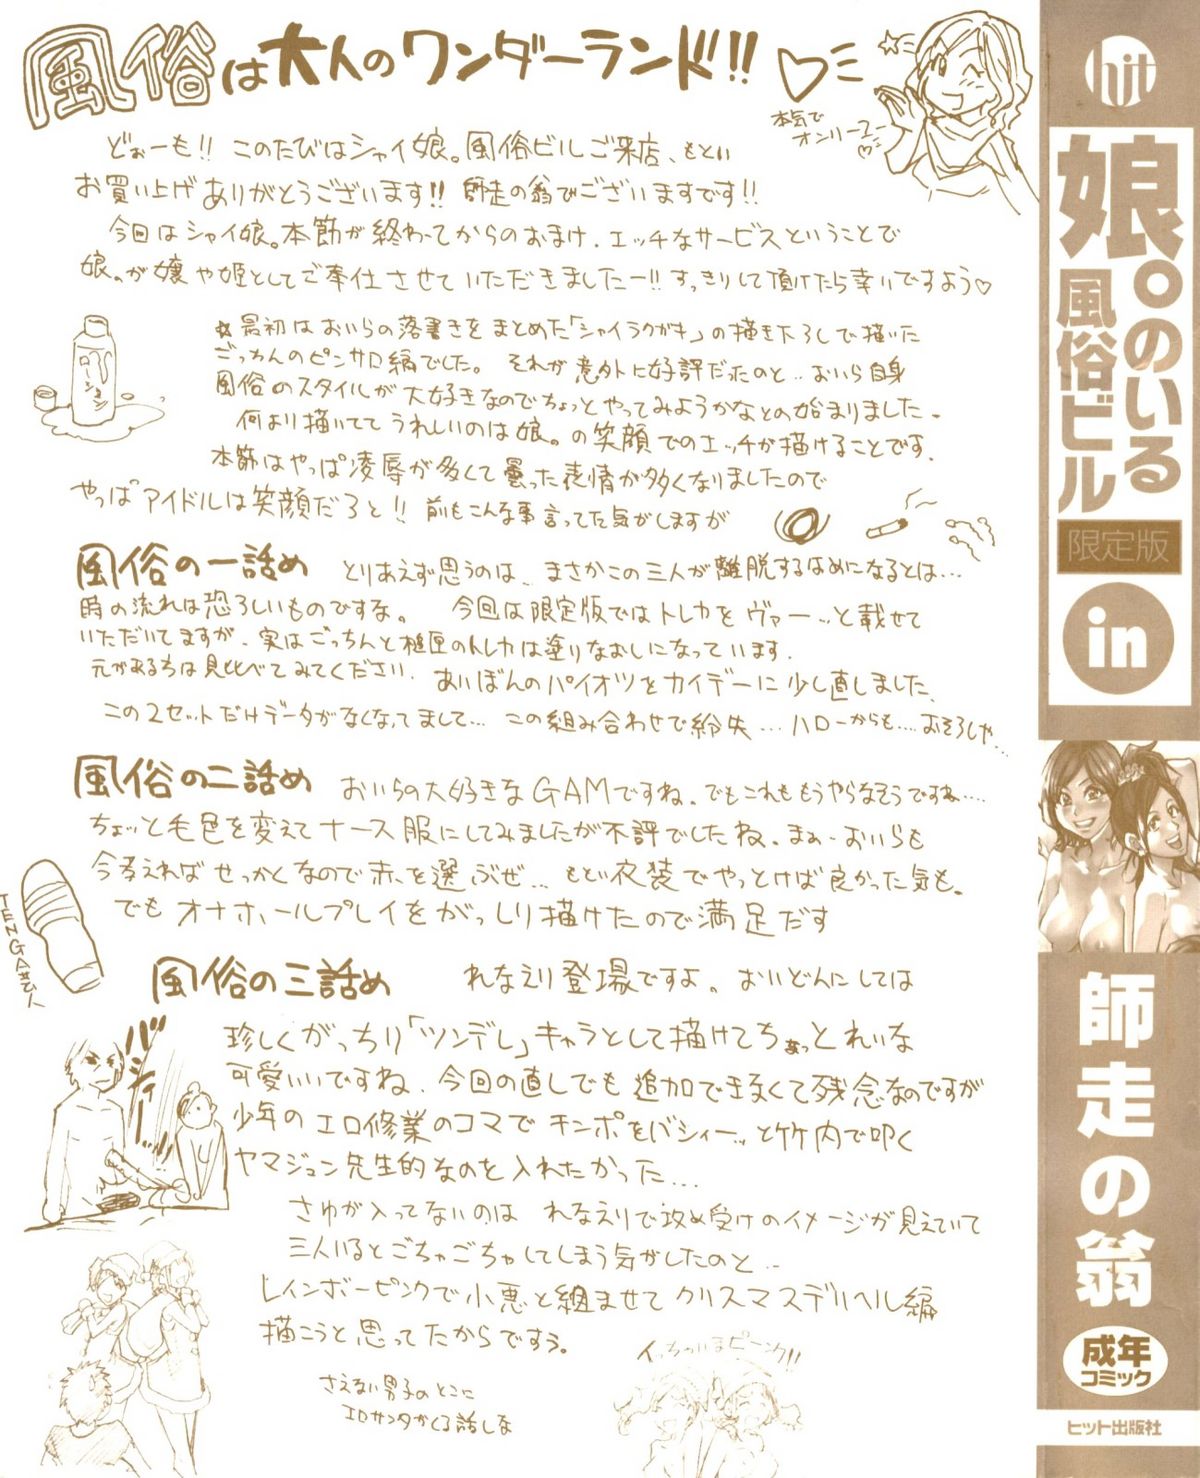 風俗は大人のワンダーランド!!
本気で
オンリーユー
どぉーも!! このたびはシャイ娘。風俗ビルご来店、もとい
お買い上げありがとうございます!! 師走の翁でございますです!!
今回はシャイ娘。本節が終わってからのおまけ.エッチなサービスということで
娘。が嬢や姫としてご奉仕させていただきましたー!! すっきりして頂けたら幸いですよう♡
☆最初はおいらの落書きをまとめた「シャイラクガキ」の描き下ろしで描いた
ごっちんのピンサロ編でした。それが意外に好評だったのと..おいら自身
風俗のスタイルが大好きなのでちょっとやってみようかなとの始まりました.
何より描いてて うれしいのは娘。の笑顔でのエッチが描けることです.
本節はやっぱ凌辱が多くして曇った表情が多くなりましたので
やっぱアイドルは笑顔だろと!! 前もこんな事言ってた気がしますが
ローション
風俗の一話め とりあえず思うのは、まさかこの三人が離脱するはめになるとは...
時の流れは恐ろしいものですな。 今回は限定版ではトレカをヴァーッと載せて
いただいてますが、実はごっちんと
のトレカは塗りなおしになっています.
元がある方は見比べてみてください. あいぼんのパイオツをカイデーに少し直しました.
この2セットだけデータがなくなってまして... この組み合わせで紛失...ハローからも....おそろしや...
風俗の二話め おいらの大好きなGAMですね。でもこれももうやらなそうですね....
ちょっと毛色を変えてナース服にしてみましたが不評でしたね.まぁ..おいらも
今考えればせっかくなので赤を選ぶぜ... もとい衣装でやっとけば良かった気も.
でもオナホールプレイをがっしり描けたので満足だす
TENGA芸人
風俗の三話め れなえり登場ですよ。おいどんにしては
珍しくがっちり「ツンデレ」キャラとして描けてちょっとれいな
可愛いいですね.今回の直しでも追加できなくて残念なのですが
少年のエロ修業のコマでチンポをバシィーッと竹内で叩く
ヤマジュン先生的なのを入れたかった...
バシィーッ
さゆが入ってないのは れなえりで攻め受けのイメージが見えていて
三人いるとごちゃごちゃしてしまう気がしたのと..
レインボーピンクで小悪と組ませてクリスマスデリヘル編
描こうと思ってたからですぅ。
イっちゃいまピーンク!!
さえない男子のとこに
エロサンタがくる話しな
hit
娘。のいる風俗ビル
限定版
in
師走の翁
成年
コミック
ヒット出版社